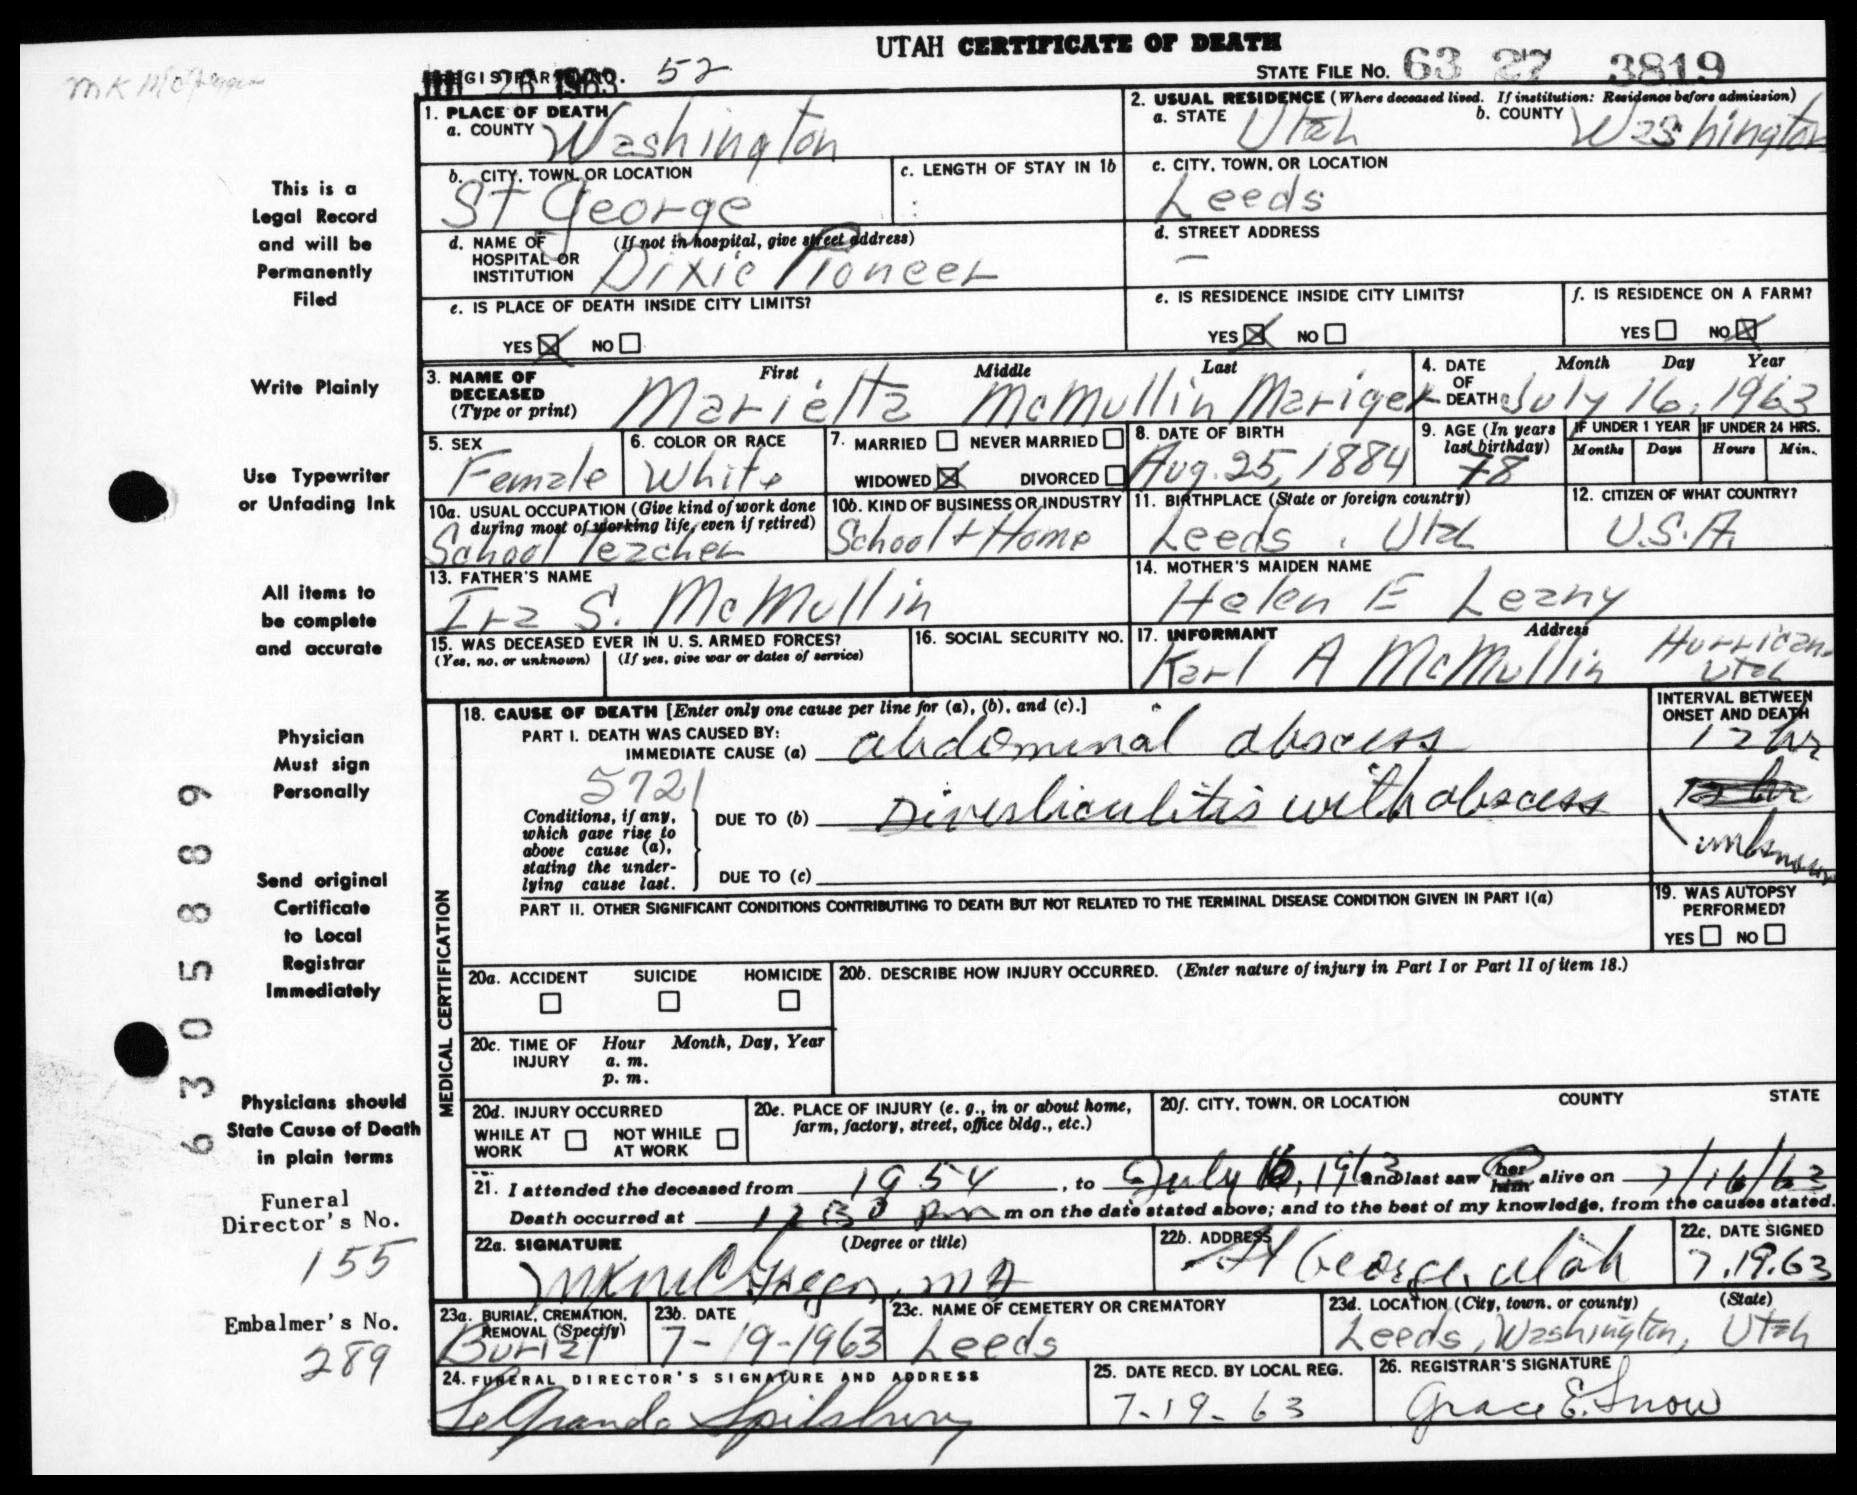 UTAH CERTIFICATE OF DEATH
REGISTRAR'S NO. 52
26 1963
STATE FILE NO. 63 27 3819
1. PLACE OF DEATH
a. COUNTY Washington
2. USUAL RESIDENCE (Where deceased lived. If institution: Residence before admission)
a. STATE Utah b. COUNTY Washington
b. CITY, TOWN, OR LOCATION St George
c. LENGTH OF STAY IN 1b
c. CITY, TOWN, OR LOCATION Leeds
d. NAME OF HOSPITAL OR INSTITUTION (If not in hospital, give street address) Dixie Pioneer
d. STREET ADDRESS –
e. IS PLACE OF DEATH INSIDE CITY LIMITS?
YES NO
e. IS RESIDENCE INSIDE CITY LIMITS?
YES NO
f. IS RESIDENCE ON A FARM?
YES NO
3. NAME OF DECEASED (Type or print) First Middle Last
Marietta McMullin Mariger
4. DATE OF DEATH Month Day Year
July 16, 1963
5. SEX Female
6. COLOR OR RACE White
7. MARRIED NEVER MARRIED
WIDOWED DIVORCED
8. DATE OF BIRTH Aug. 25, 1884
9. AGE (In years last birthday) 78
IF UNDER 1 YEAR Months Days
IF UNDER 24 HRS. Hours Min.
10a. USUAL OCCUPATION (Give kind of work done during most of working life, even if retired) School Teacher
10b. KIND OF BUSINESS OR INDUSTRY School + Home
11. BIRTHPLACE (State or foreign country) Leeds, Utah
12. CITIZEN OF WHAT COUNTRY? U.S.A.
13. FATHER'S NAME Ira S. McMullin
14. MOTHER'S MAIDEN NAME Helen E Leany
15. WAS DECEASED EVER IN U. S. ARMED FORCES?
(Yes, no, or unknown) (If yes, give war or dates of service)
16. SOCIAL SECURITY NO.
17. INFORMANT Address
Karl A McMullin Hurricane Utah
MEDICAL CERTIFICATION
18. CAUSE OF DEATH [Enter only one cause per line for (a), (b), and (c).]
PART I. DEATH WAS CAUSED BY:
IMMEDIATE CAUSE (a) abdominal abscess
5721
Conditions, if any, which gave rise to above cause (a), stating the underlying cause last.
DUE TO (b) Diverticulitis with abscess
DUE TO (c)
INTERVAL BETWEEN ONSET AND DEATH
12 hr
12 hr
unknown
PART II. OTHER SIGNIFICANT CONDITIONS CONTRIBUTING TO DEATH BUT NOT RELATED TO THE TERMINAL DISEASE CONDITION GIVEN IN PART I(a)
19. WAS AUTOPSY PERFORMED?
YES NO
20a. ACCIDENT SUICIDE HOMICIDE
20b. DESCRIBE HOW INJURY OCCURRED. (Enter nature of injury in Part I or Part II of item 18.)
20c. TIME OF INJURY Hour Month, Day, Year
a. m.
p. m.
20d. INJURY OCCURRED
WHILE AT WORK NOT WHILE AT WORK
20e. PLACE OF INJURY (e. g., in or about home, farm, factory, street, office bldg., etc.)
20f. CITY, TOWN, OR LOCATION COUNTY STATE
21. I attended the deceased from 1954, to July 16, 1963 and last saw her him alive on 7/16/63
Death occurred at 12 30 pm m on the date stated above; and to the best of my knowledge, from the causes stated.
22a. SIGNATURE (Degree or title)
MK McGregor, MD
22b. ADDRESS St George, Utah
22c. DATE SIGNED 7.19.63
23a. BURIAL, CREMATION, REMOVAL (Specify) Burial
23b. DATE 7-19-1963
23c. NAME OF CEMETERY OR CREMATORY Leeds
23d. LOCATION (City, town, or county) (State)
Leeds, Washington, Utah
24. FUNERAL DIRECTOR'S SIGNATURE AND ADDRESS
LeGrande Spilsbury
25. DATE RECD. BY LOCAL REG. 7-19-63
26. REGISTRAR'S SIGNATURE Grace E. Snow
MK McGregor
This is a
Legal Record
and will be
Permanently
Filed
Write Plainly
Use Typewriter
or Unfading Ink
All items to
be complete
and accurate
Physician
Must sign
Personally
Send original
Certificate
to Local
Registrar
Immediately
Physicians should
State Cause of Death
in plain terms
Funeral
Director's No.
155
Embalmer's No.
289
6305889